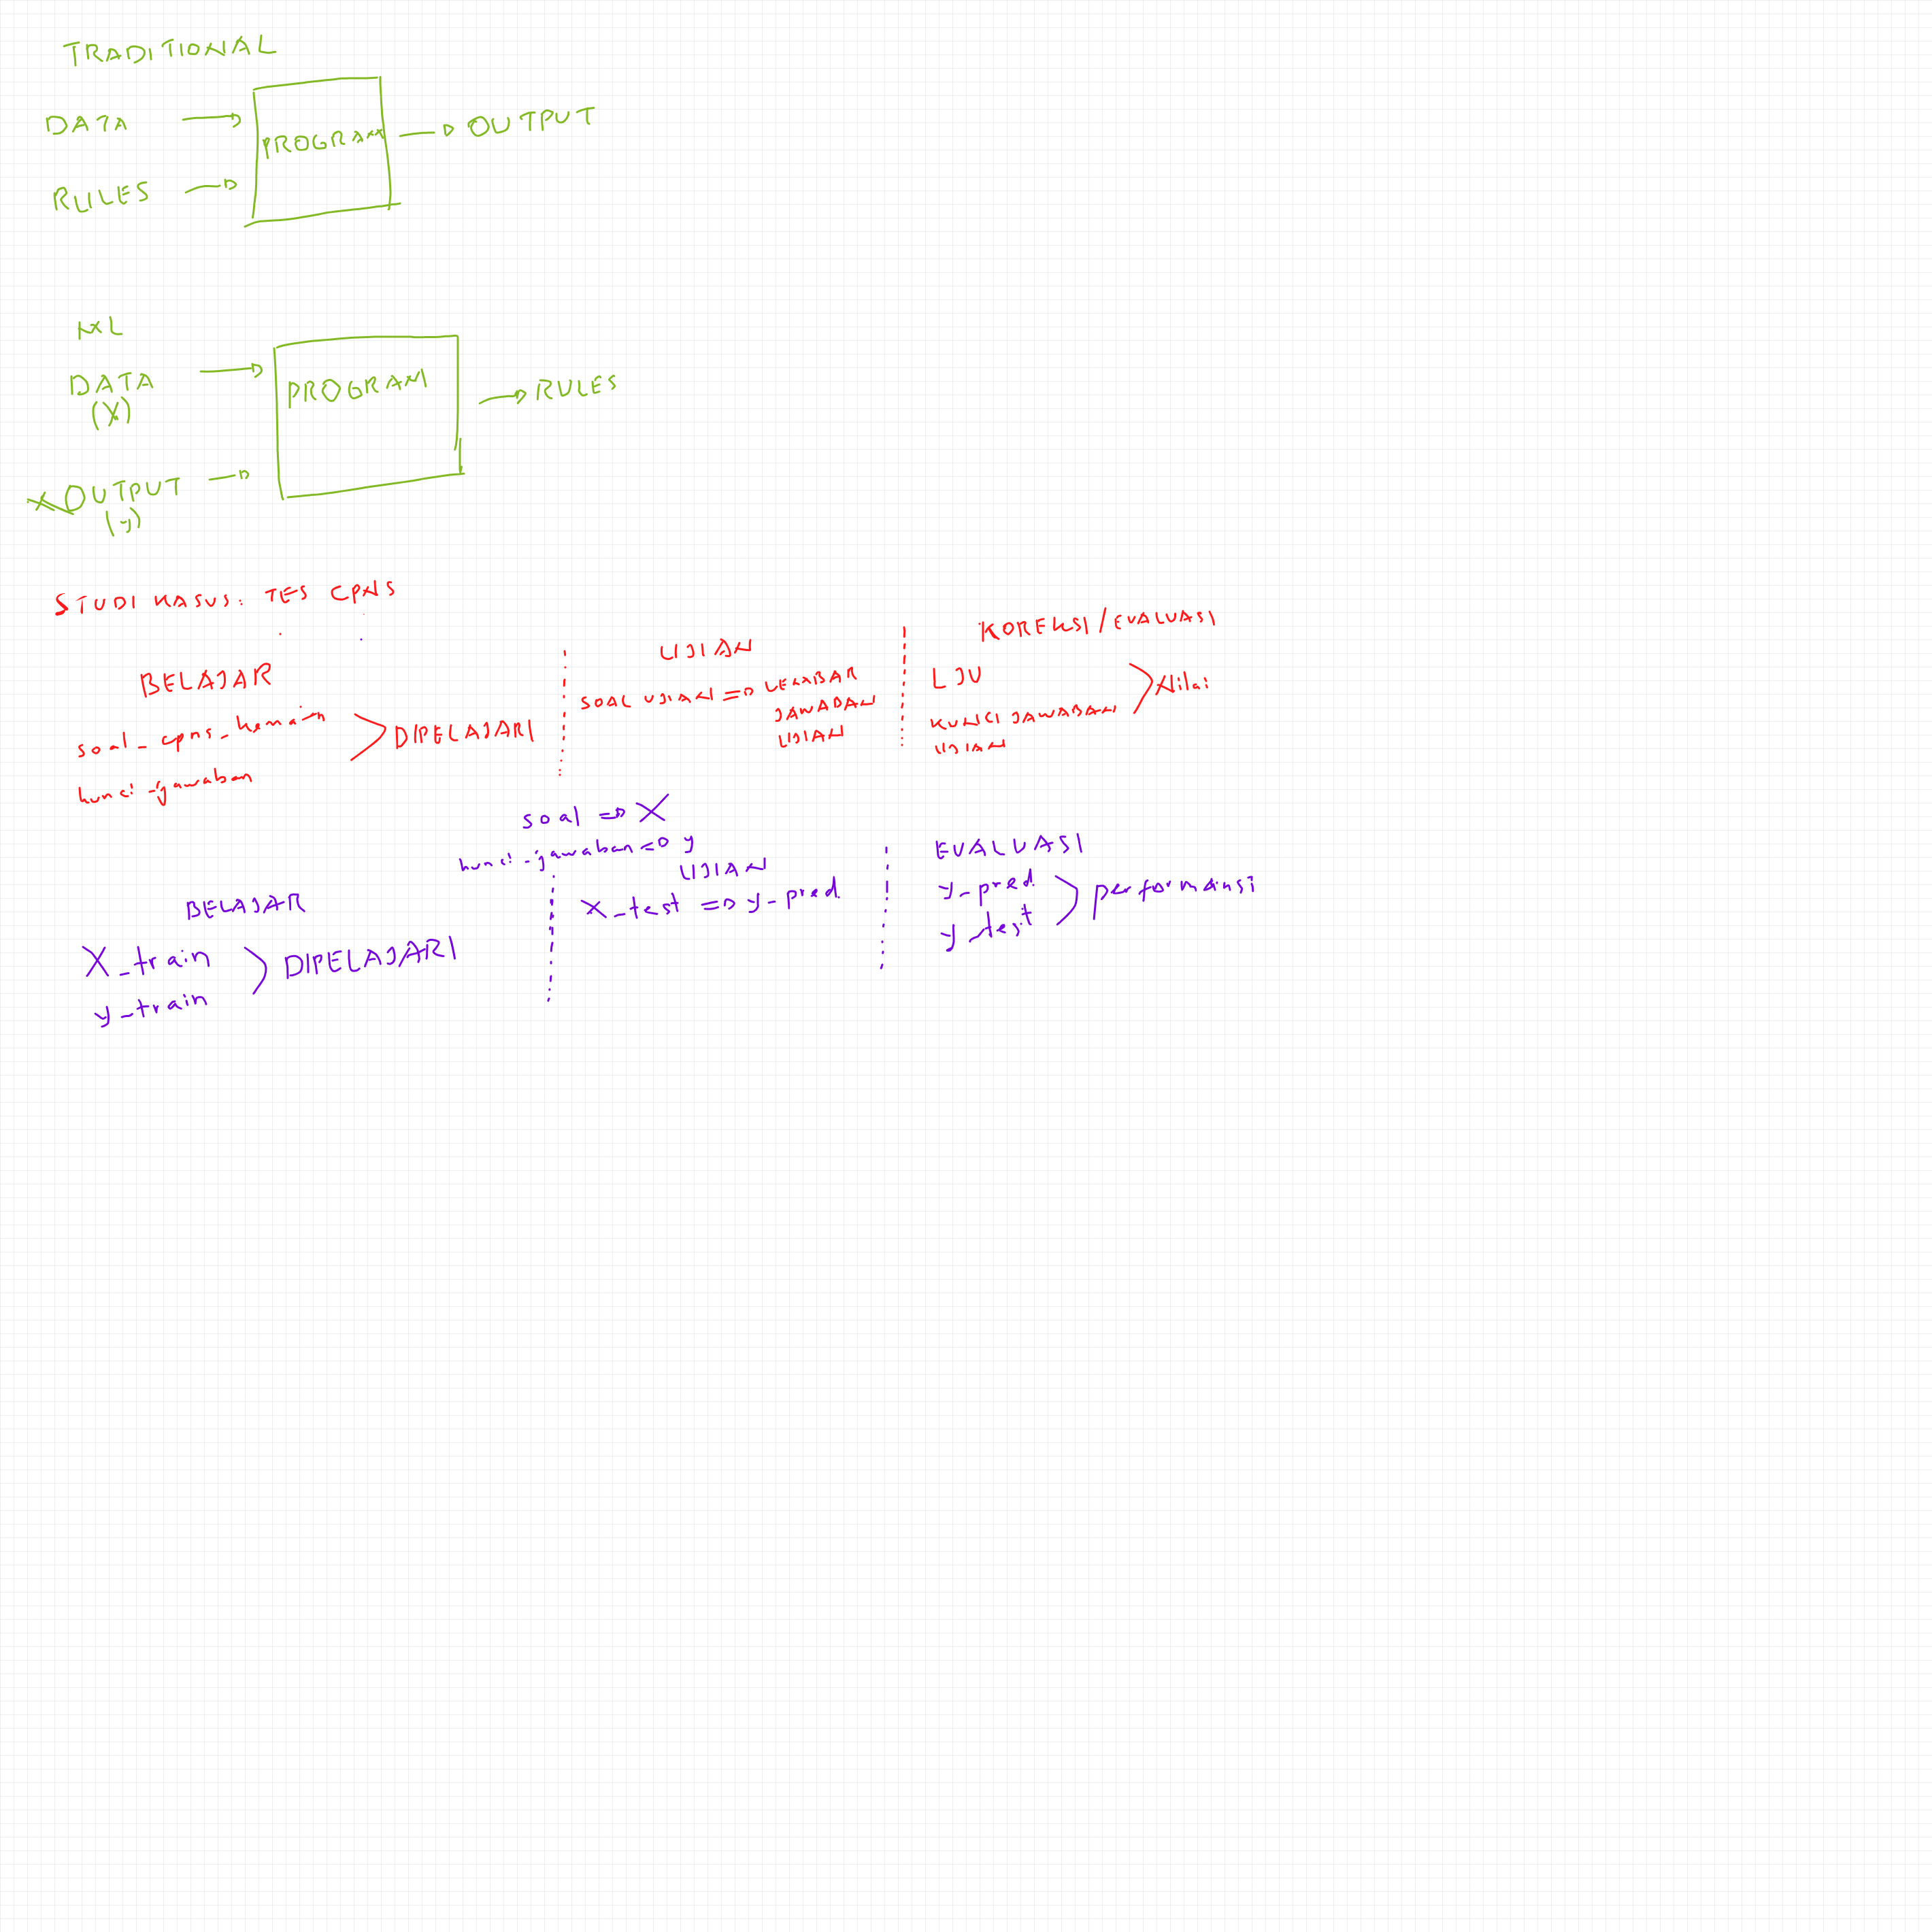 TRADITIONAL
DATA → PROGRAM → OUTPUT
RULES →
ML
DATA → PROGRAM → RULES
(X)
OUTPUT →
(y)
STUDI KASUS: TES CPNS
BELAJAR
soal_cpns_kemarin
kunci_jawaban
DIPELAJARI
UJIAN
SOAL UJIAN => LEMBAR
JAWABAN
UJIAN
KOREKSI/EVALUASI
LJU
KUNCI JAWABAN
UJIAN
Nilai
soal => X
kunci_jawaban => y
BELAJAR
X_train
y_train
DIPELAJARI
UJIAN
X_test => y_pred
EVALUASI
y_pred
y_test
performansi